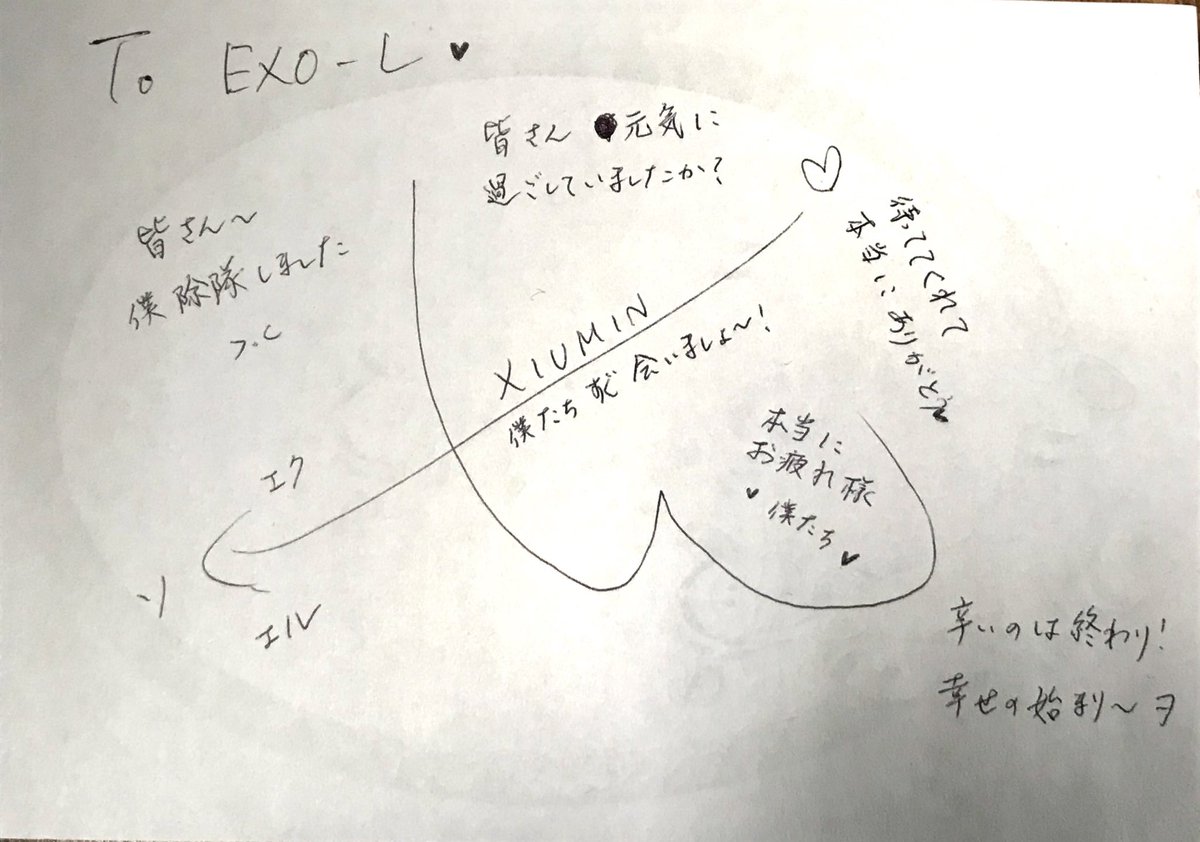 To EXO-L ♥
皆さん 元気に
過ごしていましたか?
皆さん~
僕除隊しました
待っててくれて
本当にありがとう
XIUMIN
僕たちすぐ会いましょ~!
本当に
お疲れ様
♥ 僕たち ♥
エク
ソ
エル
辛いのは終わり!
幸せの始まり~ヨ